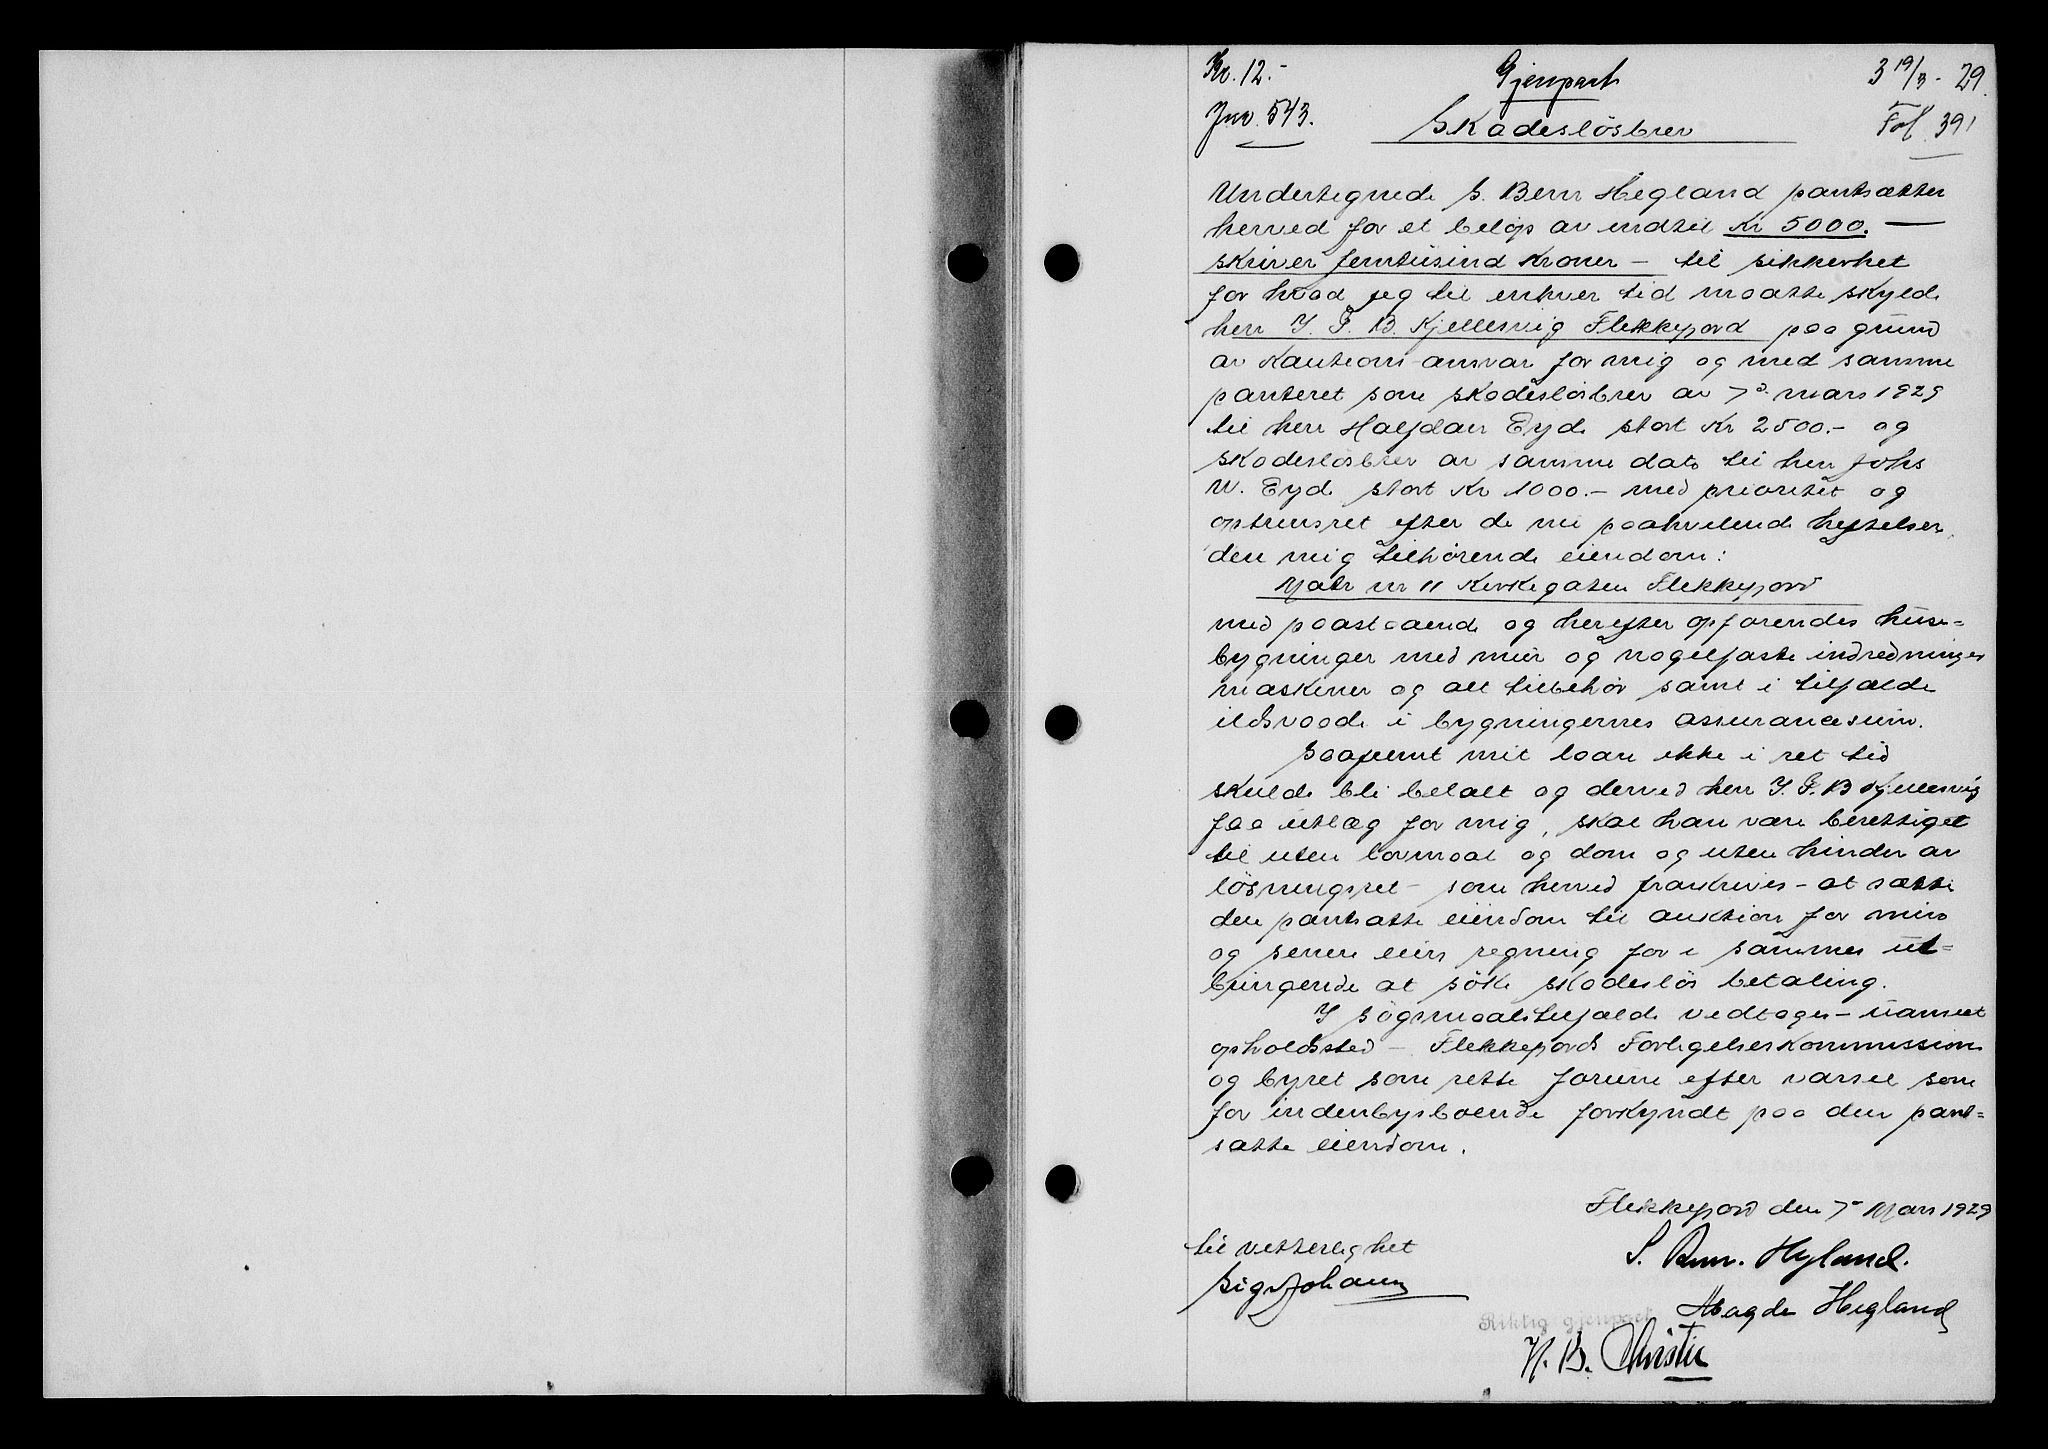 Kr. 12.-
Gjenpart
3 19/3 - 29.
Jnr. 543.
Skadesløsbrev
Fol. 391
Undertegnede S. Bern Hegland pantsætter
herved for et beløp av indtil Kr 5000.—
skriver femtusind kroner — til sikkerhet
for hvad jeg til enhver tid maatte skylde
herr J. F. B. Kjellesvig Flekkefjord paa grund
av kautions-ansvar for mig og med samme
panteret som skadesløsbrev av 7de mars 1929
til herr Halfdan Eyde stort Kr 2500.- og
skadesløsbrev av samme dato til herr Johs
W. Eyde stort Kr 1000.- med prioritet og
optrinsret efter de nu paahvilende heftelser,
den mig tilhørende eiendom:
Matr nr 11 Kirkegaten Flekkefjord
med paastaaende og herefter opførendes huse=
bygninger med mur og nagelfaste indredninger
maskiner og alt tilbehør samt i tilfælde
ildsvaade i bygningernes assurancesum.
Saafremt mit laan ikke i ret tid
skulde bli betalt og derved herr J. F. B Kjellesvig
faa utlæg for mig, skal han være berettiget
til uten lovmaal og dom og uten hinder av
løsningsret - som herved fraskrives - at sætte
den pantsatte eiendom til auktion for min
og senere eiers regning for i sammes ut=
bringende at søke skadesløs betaling.
I søgsmaalstilfælde vedtages - uanseet
opholdssted - Flekkefjords Forligelseskommission
og byret som rette forum efter varsel som
for indenbysboende forkyndt paa den pant=
satte eiendom.
Flekkefjord den 7de Mars 1929
til vitterlighet
S. Bern. Hegland.
Sig Johann
Magda Hegland
Riktig gjenpart
H. B. Christie